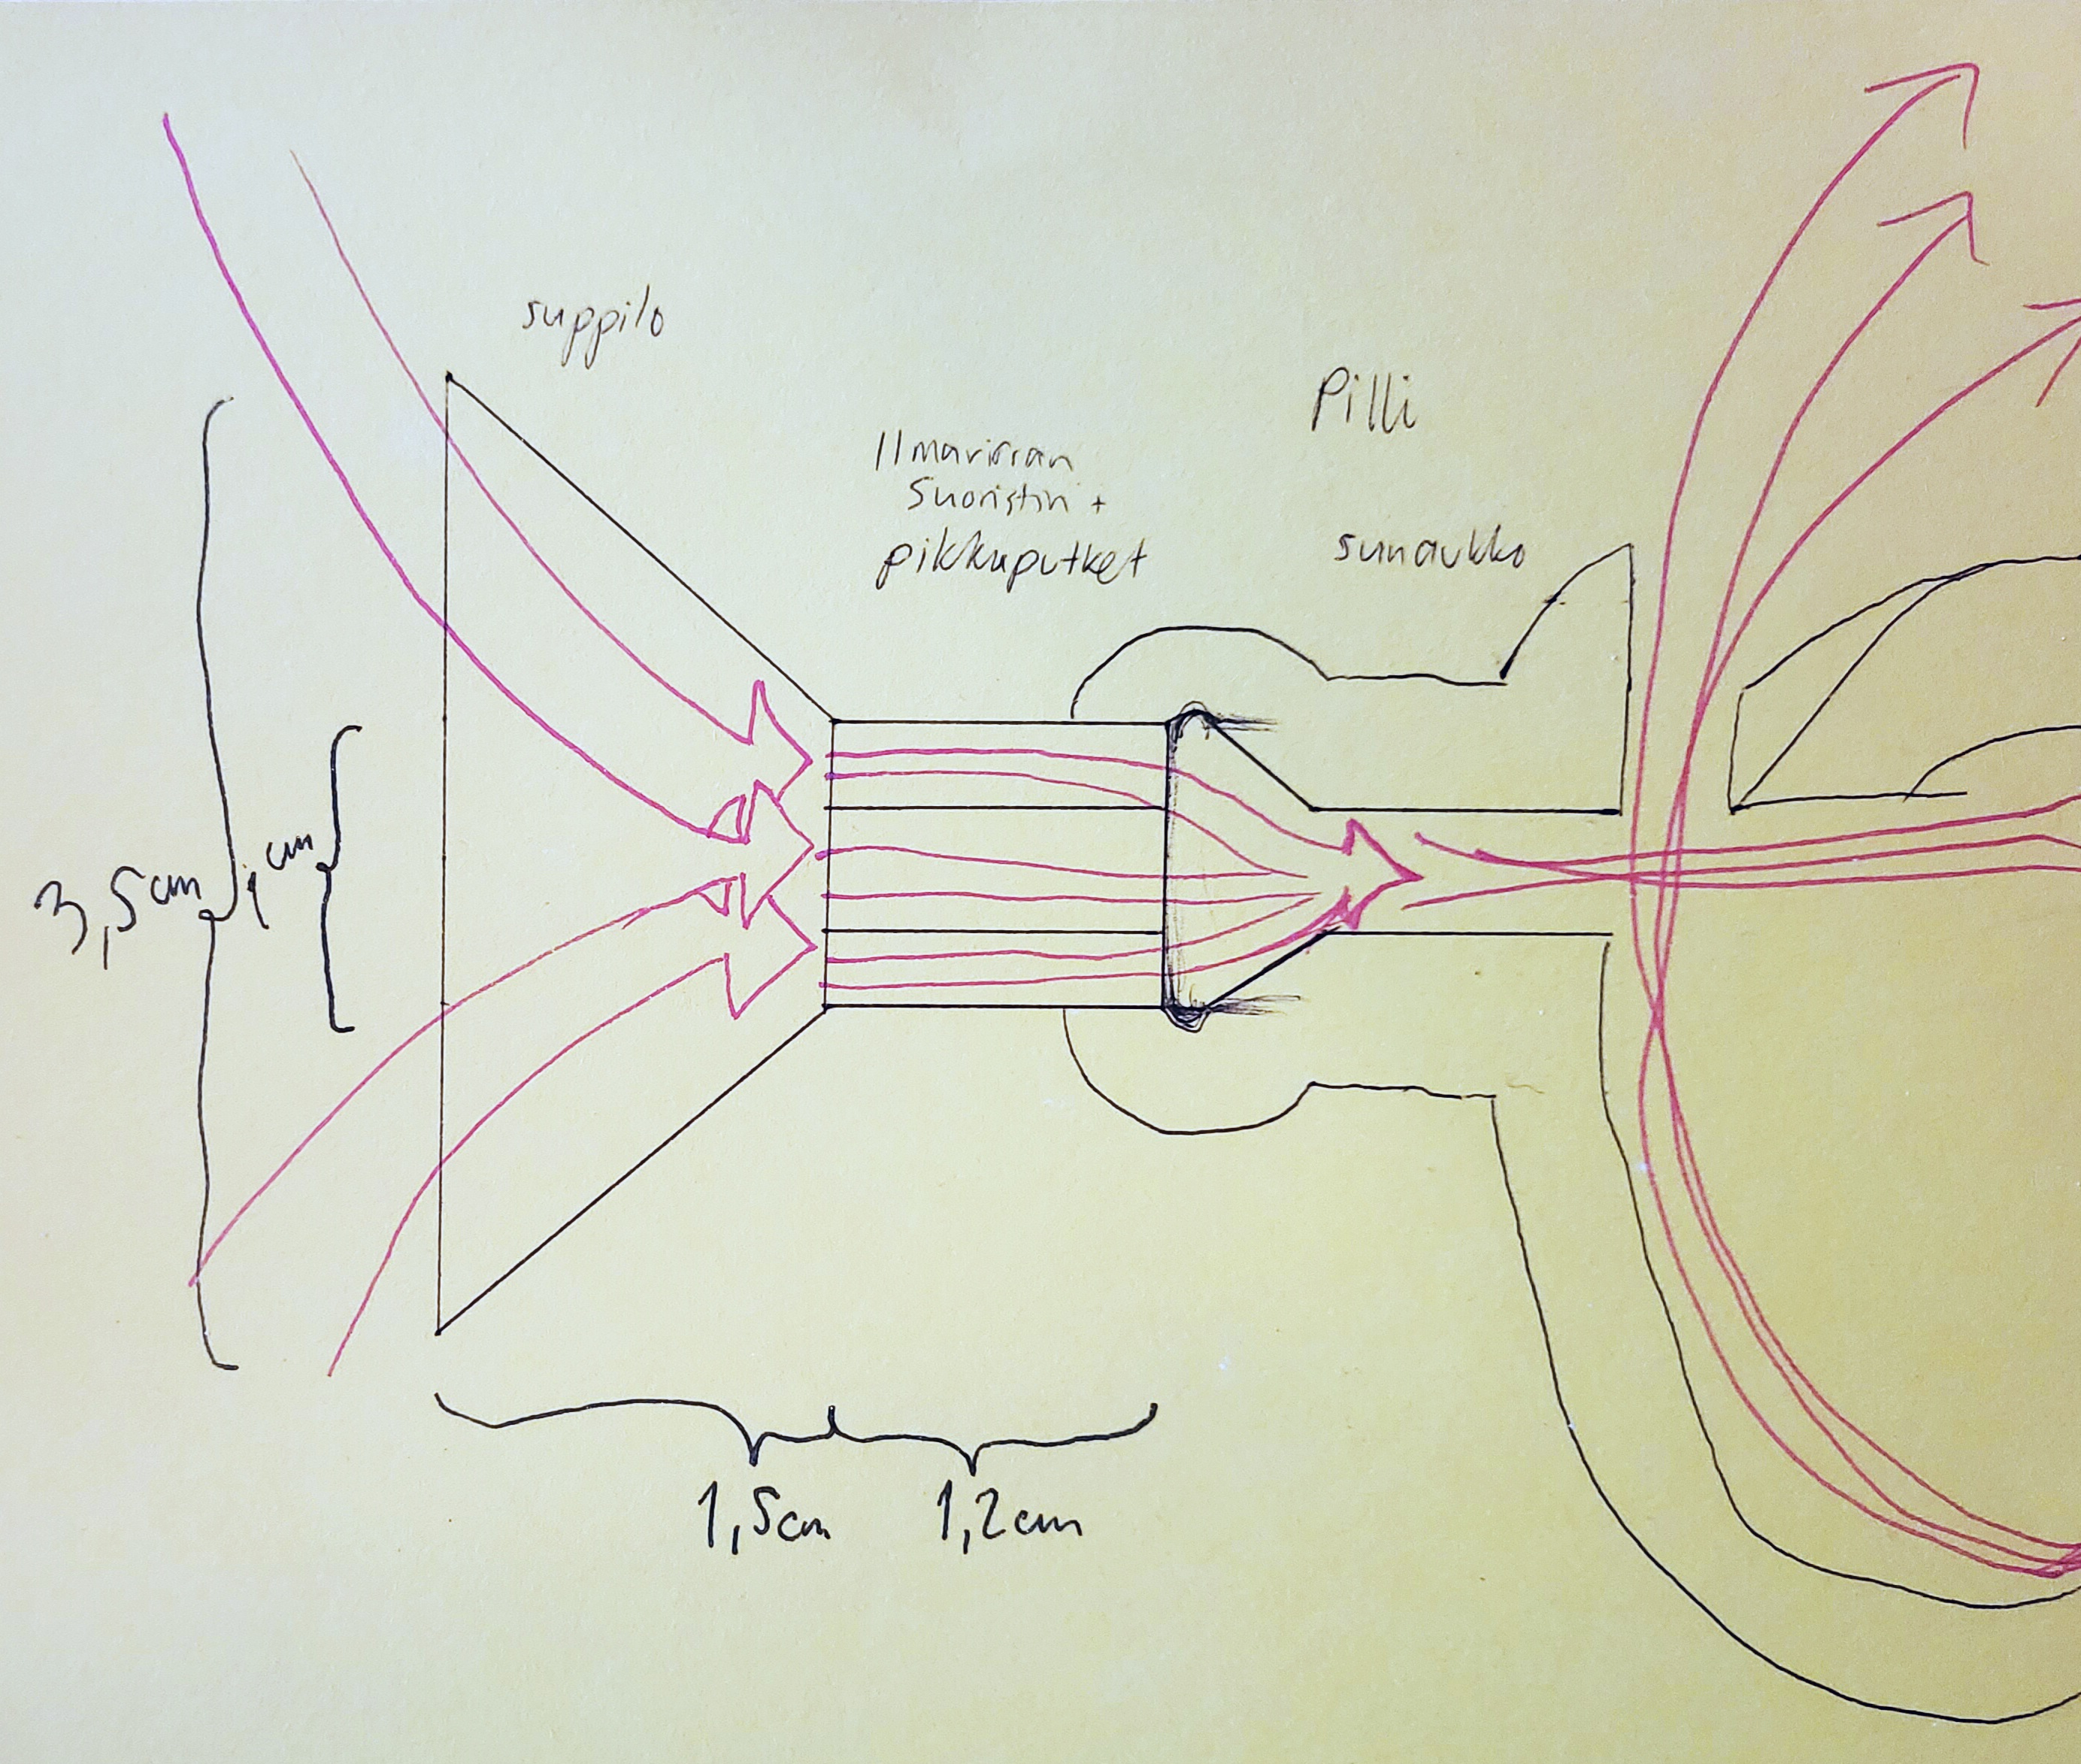 suppilo
Pilli
Ilmavirran
Suoristin +
pikkuputket
suuaukko
3,5cm
1 cm
1,5cm
1,2cm